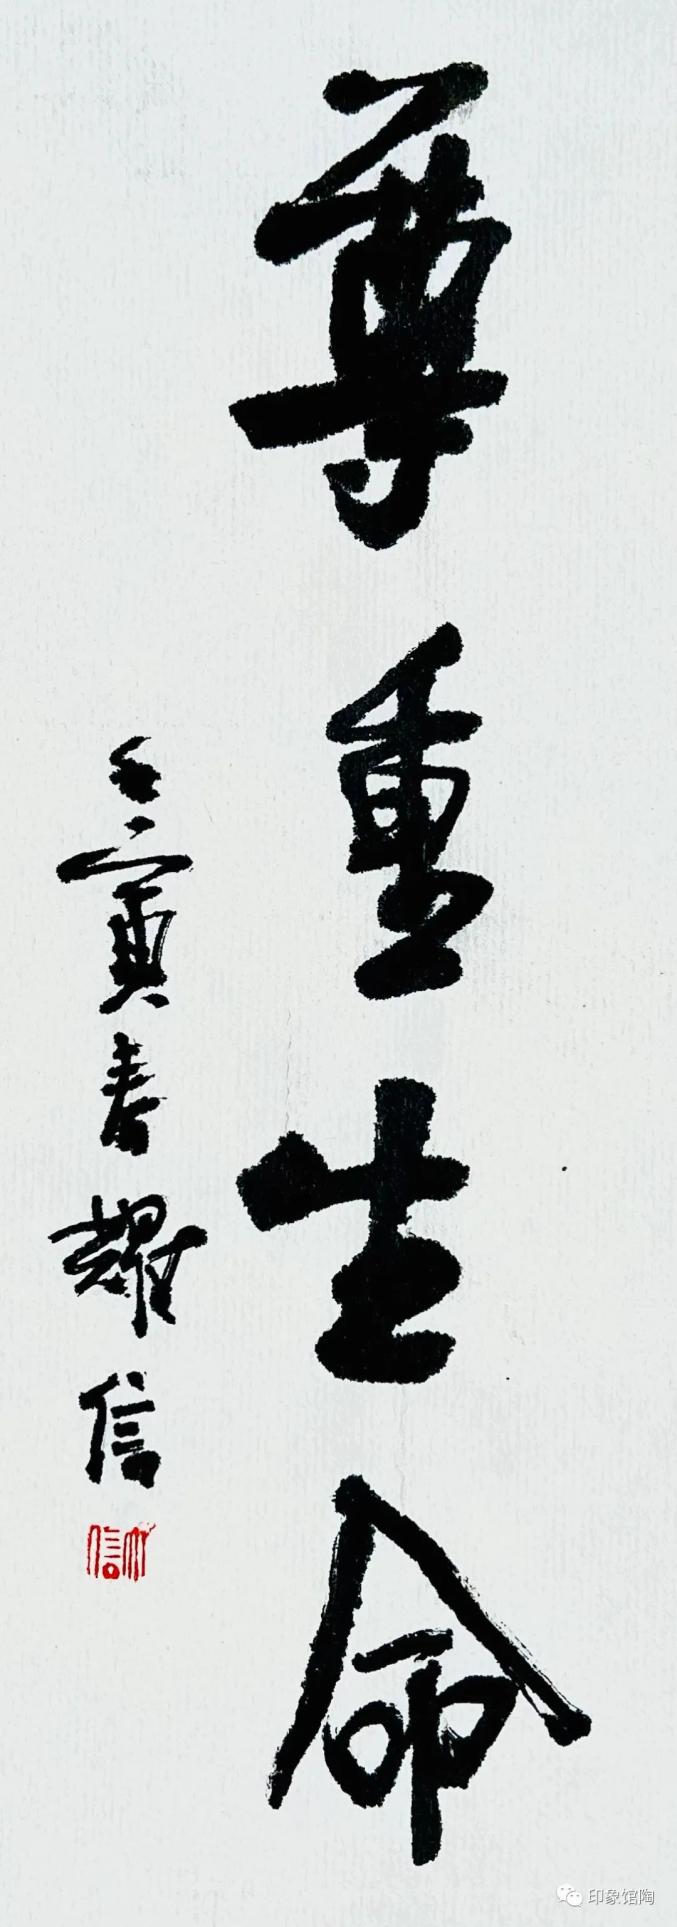 尊重生命
壬寅春耀信
印象馆陶